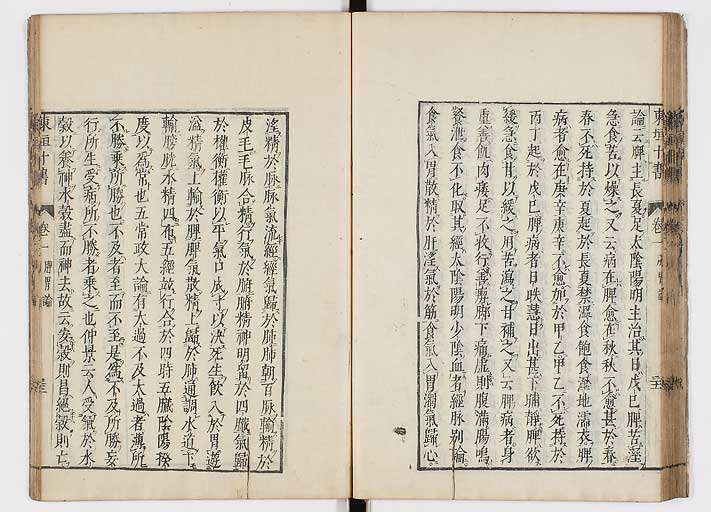 論云脾主長夏足太陰陽明主治其日戊己脾苦溼
急食苦以燥之又云病在脾愈在秋秋不愈甚於春
春不死持於夏起於長夏禁溫食飽食溼地濡衣脾
病者愈在庚辛庚辛不愈加於甲乙甲乙不死持於
丙丁起於戊己脾病者日昳慧日出甚下晡靜脾欲
緩急食甘以緩之用苦瀉之甘補之又云脾病者身
重善飢肉痿足不收行善瘈脚下痛虛則腹滿腸鳴
飧泄食不化取其經太陰陽明少陰血者經脉別論
食氣入胃散精於肝淫氣於筋食氣入胃濁氣歸心
東垣十書
卷一
脾胃論
淫精於脉脉氣流經經氣歸於肺肺朝百脉輸精於
皮毛毛脉合精行氣於腑腑精神明留於四臟氣歸
於權衡權衡以平氣口成寸以決死生飲入於胃遊
溢精氣上輸於脾脾氣散精上歸於肺通調水道下
輸膀胱水精四布五經並行合於四時五臟陰陽揆
度以爲常也五常政大論有太過不及太過者薄所
不勝乘所勝也不及者至而不至是爲不及所勝妄
行所生受病所不勝者乘之也仲景云人受氣於水
穀以養神水穀盡而神去故云安穀則昌絕穀則亡
東垣十書
卷一
脾胃論